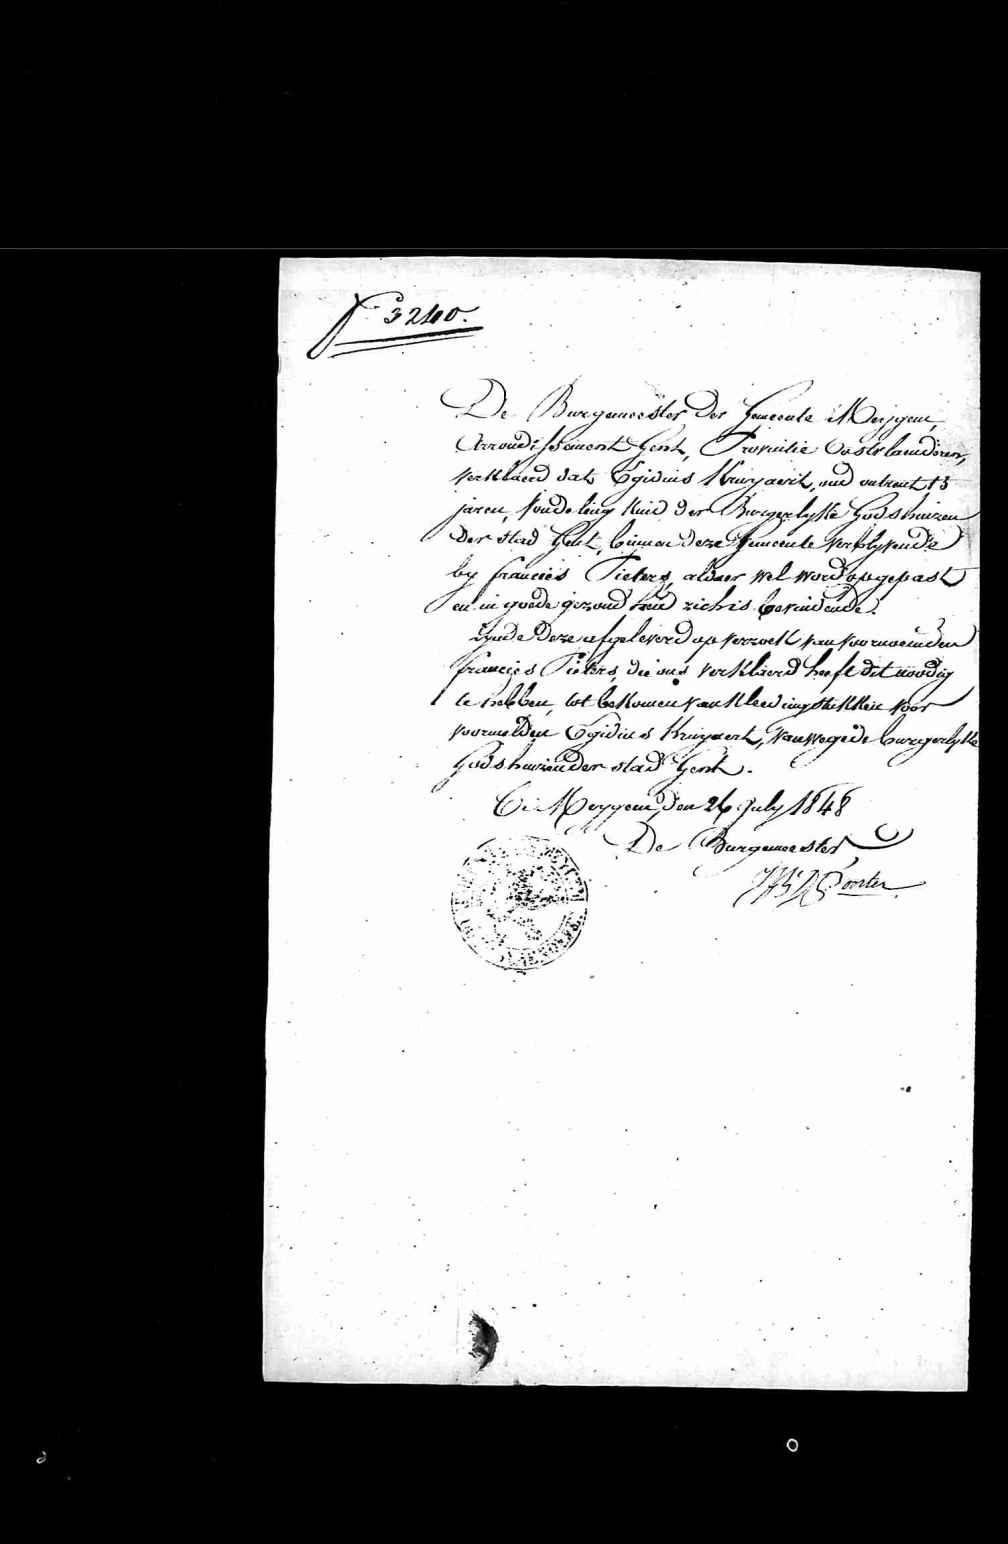 N° 3240.
De Burgemeester der Gemeente Meygem,
Arrondissement Gent, Provintie Oostvlaenderen,
verklaerd dat Egidius Kruyaert, oud ontrent 13
jaren, vondeling kind der Burgerlyke Godshuizen
der stad Gent, binnen deze Gemeente verblyvende
by francies Pieters, aldaer wel word opgepast
en in goede gezondheid zich is bevindende.
Zynde deze afgeleverd op verzoek van voornoemden
francies Pieters, die ons verklaerd heeft dit noodig
te hebben, tot bekomen van kleedingstukken voor
voormelden Egidius Kruyaert, van wege de burgerlyke
Godshuizen der stad Gent.
Meygem, den 26 July 1848
De Burgemeester,